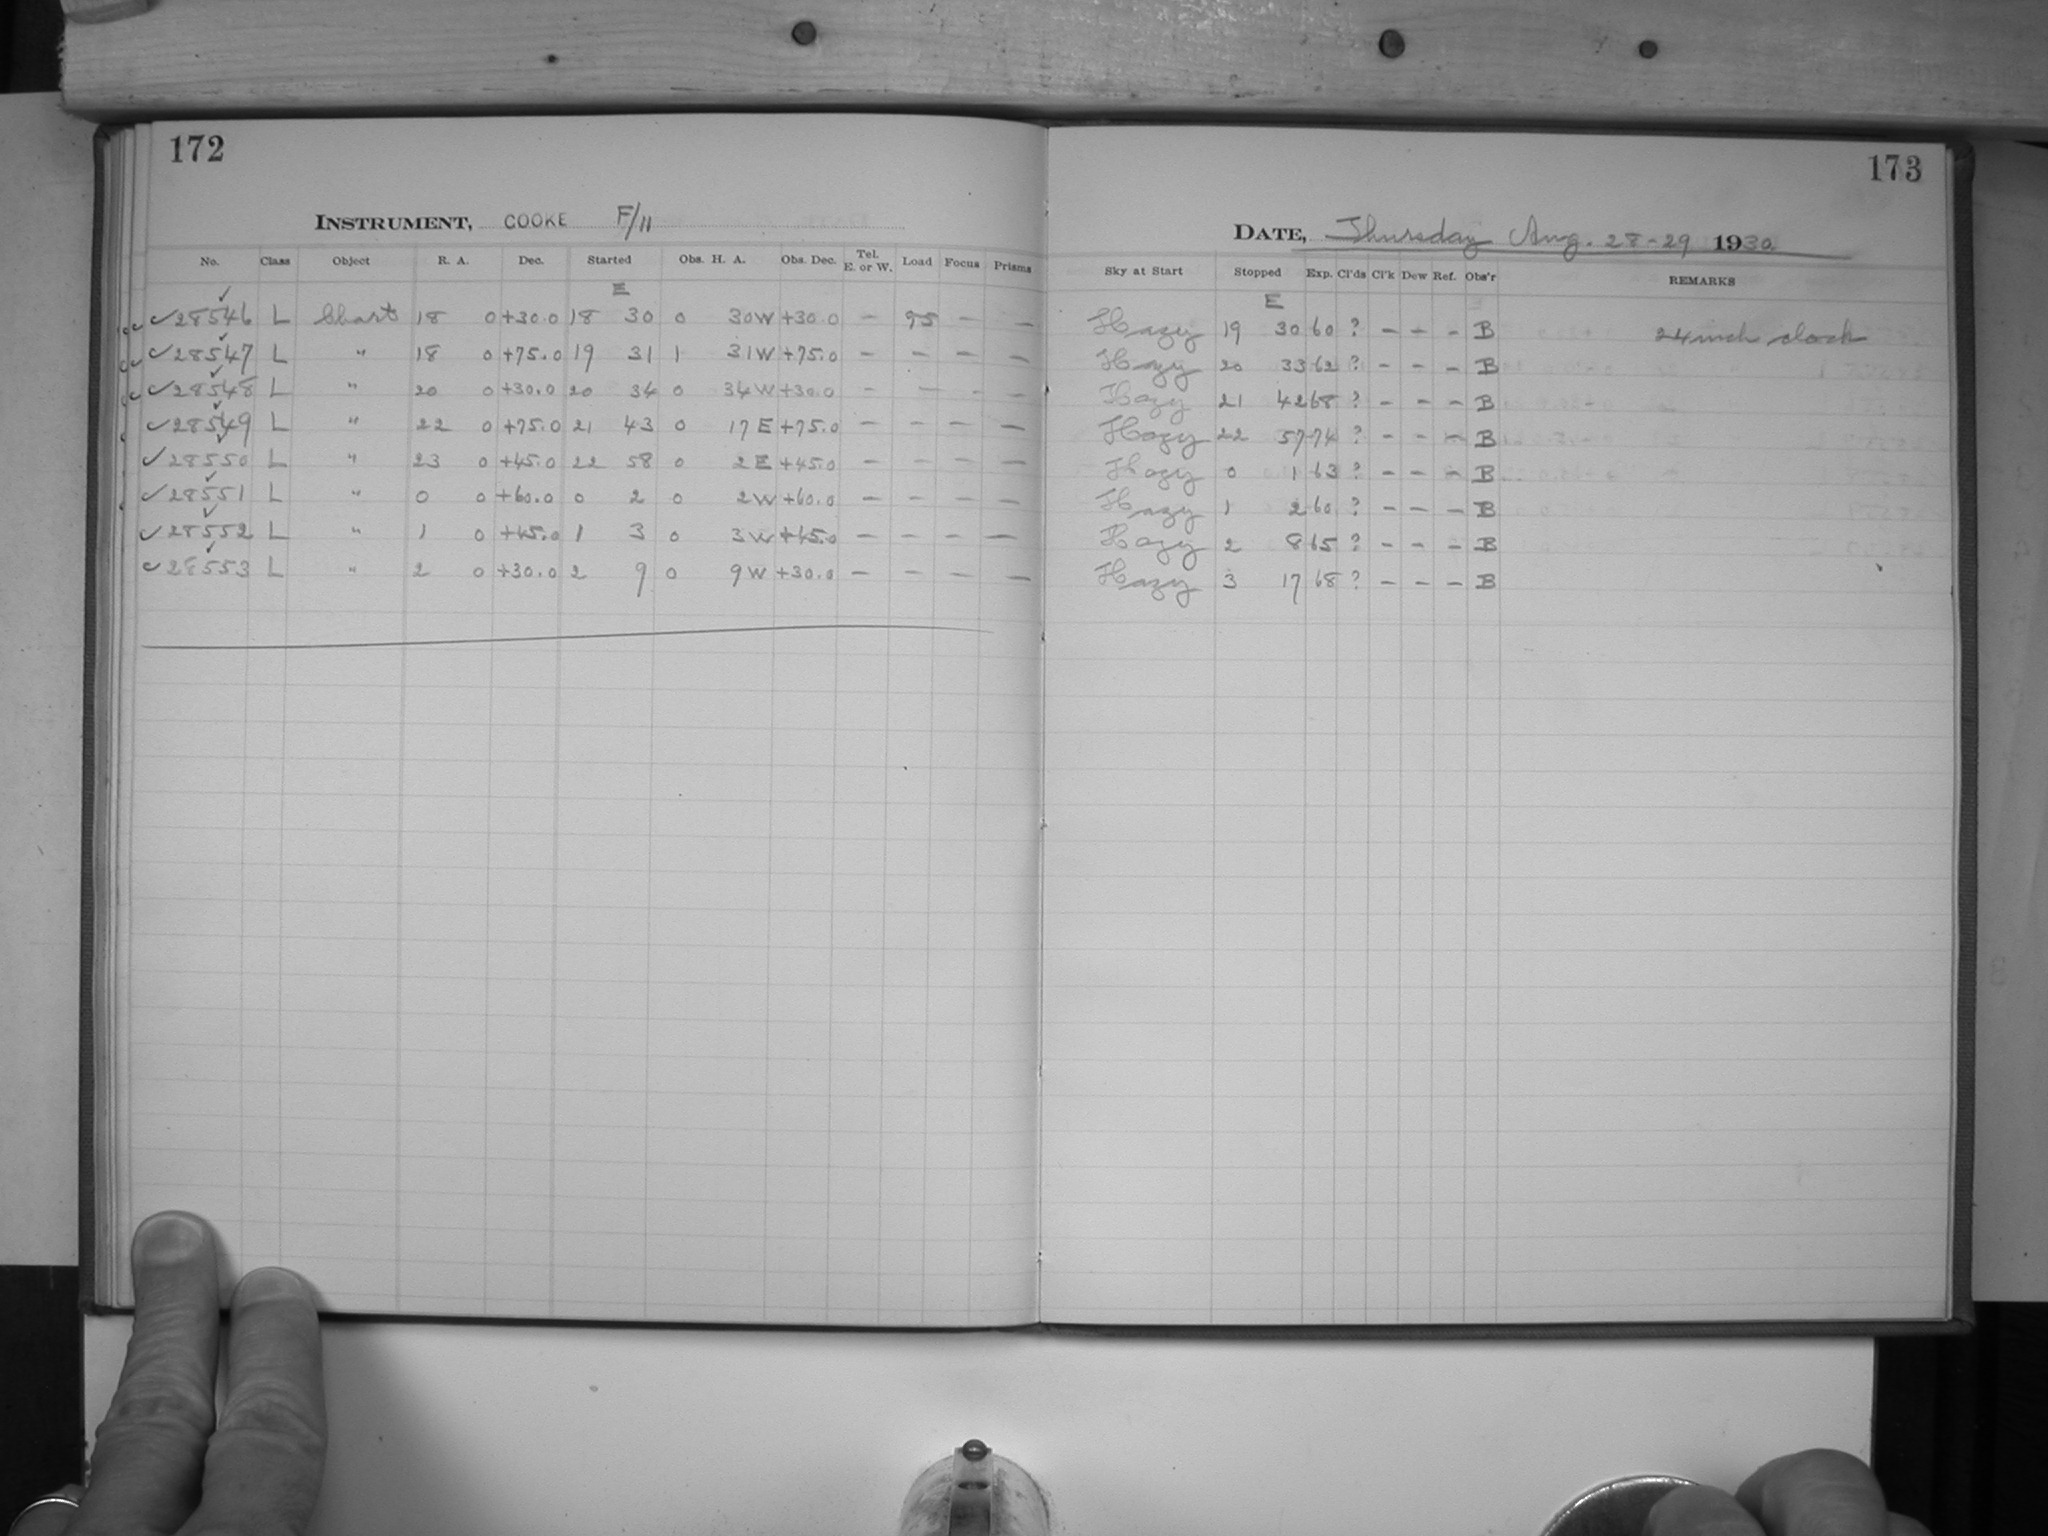 172
INSTRUMENT, COOKE F/11
No. Class Object R. A. Dec. Started Obs. H. A. Obs. Dec. Tel. E. or W. Load Focus Prisms
E
28546 L Chart 18 0 +30.0 18 30 0 30W +30.0 - 95 - -
28547 L " 18 0 +75.0 19 31 1 31W +75.0 - - - -
28548 L " 20 0 +30.0 20 34 0 34W +30.0 - - - -
28549 L " 22 0 +75.0 21 43 0 17E +75.0 - - - -
28550 L " 23 0 +45.0 22 58 0 2E +45.0 - - - -
28551 L " 0 0 +60.0 0 2 0 2W +60.0 - - - -
28552 L " 1 0 +45.0 1 3 0 3W +45.0 - - - -
28553 L " 2 0 +30.0 2 9 0 9W +30.0 - - - -
173
DATE, Thursday Aug. 28-29 1930
Sky at Start Stopped Exp. Cl'ds Cl'k Dew Ref. Obs'r REMARKS
E
Hazy 19 30 60 ? - - - B 24 inch clock
Hazy 20 33 62 ? - - - B
Hazy 21 42 68 ? - - - B
Hazy 22 57 74 ? - - - B
Hazy 0 1 63 ? - - - B
Hazy 1 2 60 ? - - - B
Hazy 2 8 65 ? - - - B
Hazy 3 17 68 ? - - - B